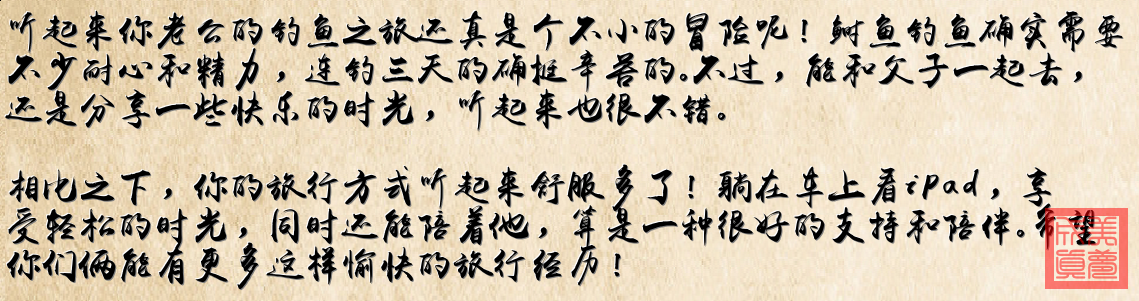 听起来你老公的钓鱼之旅还真是个不小的冒险呢！鲥鱼钓鱼确实需要
不少耐心和精力，连钓三天的确挺辛苦的。不过，能和父子一起去，
还是分享一些快乐的时光，听起来也很不错。
相比之下，你的旅行方式听起来舒服多了！躺在车上看iPad，享
受轻松的时光，同时还能陪着他，算是一种很好的支持和陪伴。希望
你们俩能有更多这样愉快的旅行经历！